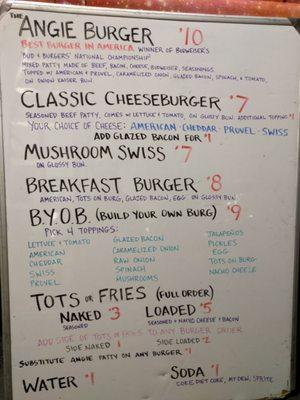 THE ANGIE BURGER $10
BEST BURGER IN AMERICA WINNER OF BUDWEISER'S
BUD & BURGERS' NATIONAL CHAMPIONSHIP!
MIXED PATTY MADE OF BEEF, BACON, CHEESE, BUDWEISER, SEASONINGS.
TOPPED W/ AMERICAN & PROVEL, CARAMELIZED ONION, GLAZED BACON, SPINACH, & TOMATO,
ON ONION KAISER BUN.
CLASSIC CHEESEBURGER $7
SEASONED BEEF PATTY, COMES W/ LETTUCE & TOMATO, ON GLOSSY BUN. ADDITIONAL TOPPING $1
YOUR CHOICE OF CHEESE: AMERICAN · CHEDDAR · PROVEL · SWISS
ADD GLAZED BACON FOR $1
MUSHROOM SWISS $7
ON GLOSSY BUN.
BREAKFAST BURGER $8
AMERICAN, TOTS ON BURG, GLAZED BACON, EGG ON GLOSSY BUN.
B.Y.O.B. (BUILD YOUR OWN BURG) $9
PICK 4 TOPPINGS:
LETTUCE & TOMATO GLAZED BACON JALAPEÑOS
AMERICAN CARAMELIZED ONION PICKLES
CHEDDAR RAW ONION EGG
SWISS SPINACH TOTS ON BURG
PROVEL MUSHROOMS NACHO CHEESE
TOTS OR FRIES (FULL ORDER)
NAKED $3 LOADED $5
SEASONED SEASONED & NACHO CHEESE & BACON
ADD SIDE OF TOTS OR FRIES TO ANY BURGER ORDER
SIDE NAKED $1 SIDE LOADED $2
SUBSTITUTE ANGIE PATTY ON ANY BURGER $1
WATER $1 SODA $1
COKE, DIET COKE, MT. DEW, SPRITE